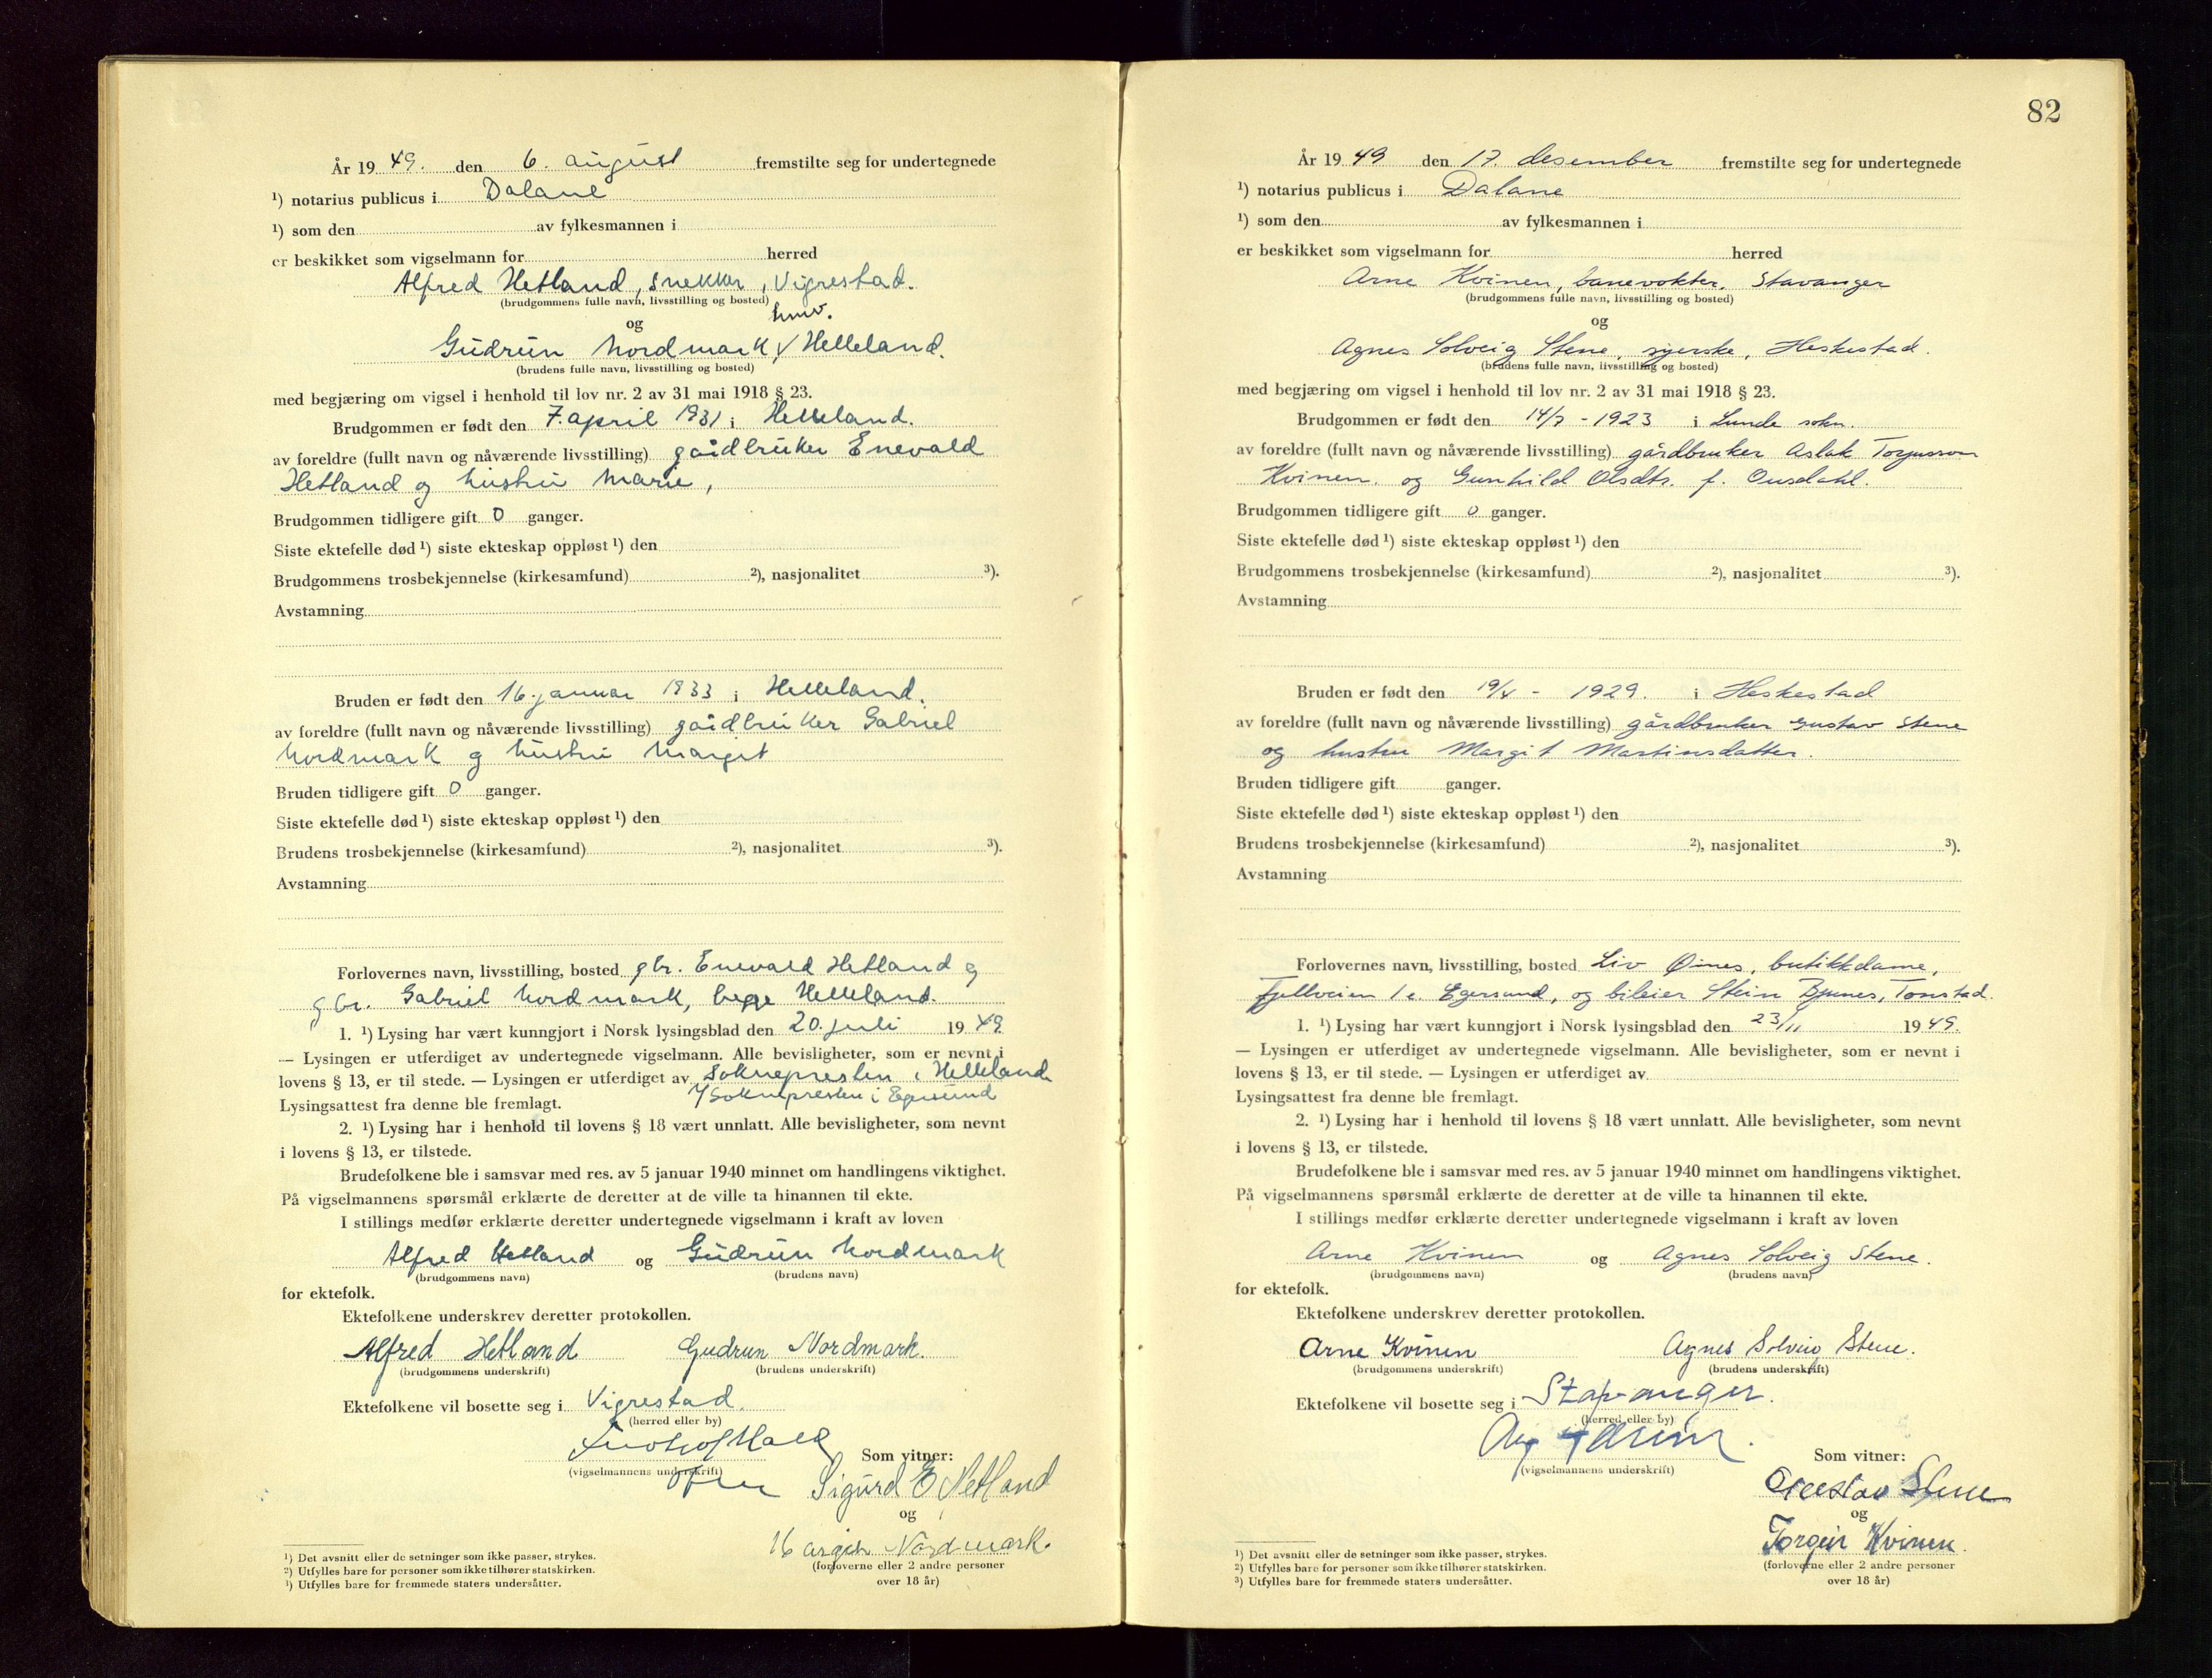 År 1949. den 6. august fremstilte seg for undertegnede
¹) notarius publicus i Dalane
¹) som den av fylkesmannen i
er beskikket som vigselmann for herred
Alfred Hetland, snekker, Vigrestad.
(brudgommens fulle navn, livsstilling og bosted)
og
Gudrun Nordmark, Helleland.
(brudens fulle navn, livsstilling og bosted)
med begjæring om vigsel i henhold til lov nr. 2 av 31 mai 1918 § 23.
Brudgommen er født den 7. april 1931 i Helleland.
av foreldre (fullt navn og nåværende livsstilling) gårdbruker Enevald
Hetland og hustru Marie,
Brudgommen tidligere gift 0 ganger.
Siste ektefelle død ¹) siste ekteskap oppløst ¹) den
Brudgommens trosbekjennelse (kirkesamfund) ²), nasjonalitet ³).
Avstamning
Bruden er født den 16. januar 1933 i Helleland.
av foreldre (fullt navn og nåværende livsstilling) gårdbruker Gabriel
Nordmark og hustru Margit
Bruden tidligere gift 0 ganger.
Siste ektefelle død ¹) siste ekteskap oppløst ¹) den
Brudens trosbekjennelse (kirkesamfund) ²), nasjonalitet ³).
Avstamning
Forlovernes navn, livsstilling, bosted gbr. Enevald Hetland og
gbr. Gabriel Nordmark, begge Helleland.
1. ¹) Lysing har vært kunngjort i Norsk lysingsblad den 20. juli 1949.
— Lysingen er utferdiget av undertegnede vigselmann. Alle bevisligheter, som er nevnt i
lovens § 13, er til stede. — Lysingen er utferdiget av Soknepresten i Helleland
Lysingsattest fra denne ble fremlagt. Soknepresten i Egersund
2. ¹) Lysing har i henhold til lovens § 18 vært unnlatt. Alle bevisligheter, som nevnt
i lovens § 13, er tilstede.
Brudefolkene ble i samsvar med res. av 5 januar 1940 minnet om handlingens viktighet.
På vigselmannens spørsmål erklærte de deretter at de ville ta hinannen til ekte.
I stillings medfør erklærte deretter undertegnede vigselmann i kraft av loven
Alfred Hetland og Gudrun Nordmark
(brudgommens navn) (brudens navn)
for ektefolk.
Ektefolkene underskrev deretter protokollen.
Alfred Hetland Gudrun Nordmark.
(brudgommens underskrift) (brudens underskrift)
Ektefolkene vil bosette seg i Vigrestad.
(herred eller by)
Som vitner:
(vigselmannens underskrift)
Sigurd E Hetland
og
Margit Nordmark.
(forloverne eller 2 andre personer
over 18 år)
¹) Det avsnitt eller de setninger som ikke passer, strykes.
²) Utfylles bare for personer som ikke tilhører statskirken.
³) Utfylles bare for fremmede staters undersåtter.
82
År 1949 den 17. desember fremstilte seg for undertegnede
¹) notarius publicus i Dalane
¹) som den av fylkesmannen i
er beskikket som vigselmann for herred
Arne Kvinen, banevokter, Stavanger
(brudgommens fulle navn, livsstilling og bosted)
og
Agnes Solveig Stene, syerske, Heskestad.
(brudens fulle navn, livsstilling og bosted)
med begjæring om vigsel i henhold til lov nr. 2 av 31 mai 1918 § 23.
Brudgommen er født den 14/7 - 1923 i Lunde sokn.
av foreldre (fullt navn og nåværende livsstilling) gårdbruker Aslak Torjusson
Kvinen. og Gunhild Olsdtr. f. Ousdahl.
Brudgommen tidligere gift 0 ganger.
Siste ektefelle død ¹) siste ekteskap oppløst ¹) den
Brudgommens trosbekjennelse (kirkesamfund) ²), nasjonalitet ³).
Avstamning
Bruden er født den 19/4 - 1929. i Heskestad
av foreldre (fullt navn og nåværende livsstilling) gårdbruker Gustav Stene
og hustru Margit Martinsdatter.
Bruden tidligere gift ganger.
Siste ektefelle død ¹) siste ekteskap oppløst ¹) den
Brudens trosbekjennelse (kirkesamfund) ²), nasjonalitet ³).
Avstamning
Forlovernes navn, livsstilling, bosted Liv Øines, butikkdame,
Fjellveien 1 e. Egersund, og bileier Stein Bjunes, Tonstad.
1. ¹) Lysing har vært kunngjort i Norsk lysingsblad den 23/11 1949.
— Lysingen er utferdiget av undertegnede vigselmann. Alle bevisligheter, som er nevnt i
lovens § 13, er til stede. — Lysingen er utferdiget av
Lysingsattest fra denne ble fremlagt.
2. ¹) Lysing har i henhold til lovens § 18 vært unnlatt. Alle bevisligheter, som nevnt
i lovens § 13, er tilstede.
Brudefolkene ble i samsvar med res. av 5 januar 1940 minnet om handlingens viktighet.
På vigselmannens spørsmål erklærte de deretter at de ville ta hinannen til ekte.
I stillings medfør erklærte deretter undertegnede vigselmann i kraft av loven
Arne Kvinen og Agnes Solveig Stene.
(brudgommens navn) (brudens navn)
for ektefolk.
Ektefolkene underskrev deretter protokollen.
Arne Kvinen Agnes Solveig Stene.
(brudgommens underskrift) (brudens underskrift)
Ektefolkene vil bosette seg i Stavanger.
(herred eller by)
Som vitner:
(vigselmannens underskrift)
Gustav Stene
og
Torgeir Kvinen.
(forloverne eller 2 andre personer
over 18 år)
¹) Det avsnitt eller de setninger som ikke passer, strykes.
²) Utfylles bare for personer som ikke tilhører statskirken.
³) Utfylles bare for fremmede staters undersåtter.